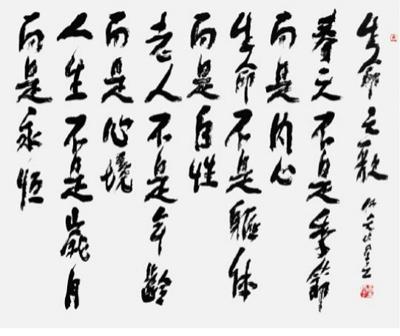 生命之歌
春天不是季節
而是内心
生命不是軀体
而是自性
老人不是年齡
而是心境
人生不是歲月
而是永恒